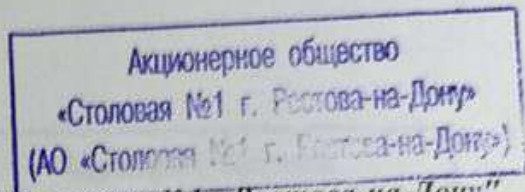 Акционерное общество
«Столовая №1 г. Ростова-на-Дону»
(АО «Столовая №1 г. Ростова-на-Дону»)
на Дону"